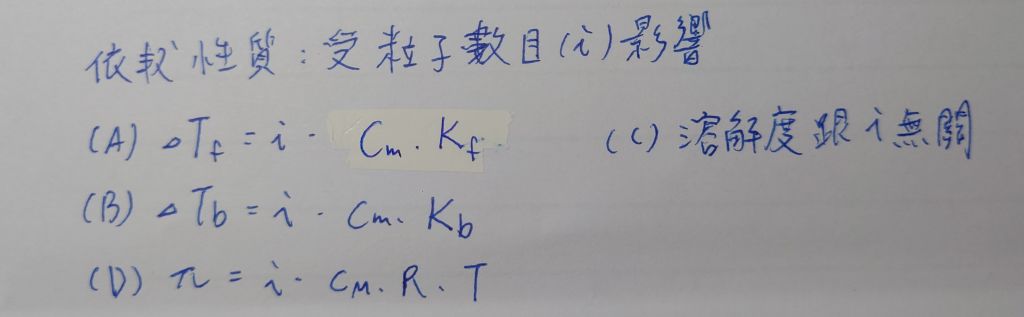 依數性質:受粒子數目(i)影響
(A) △Tf = i · Cm · Kf
(C) 溶解度跟 i 無關
(B) △Tb = i · Cm · Kb
(D) π = i · CM · R · T